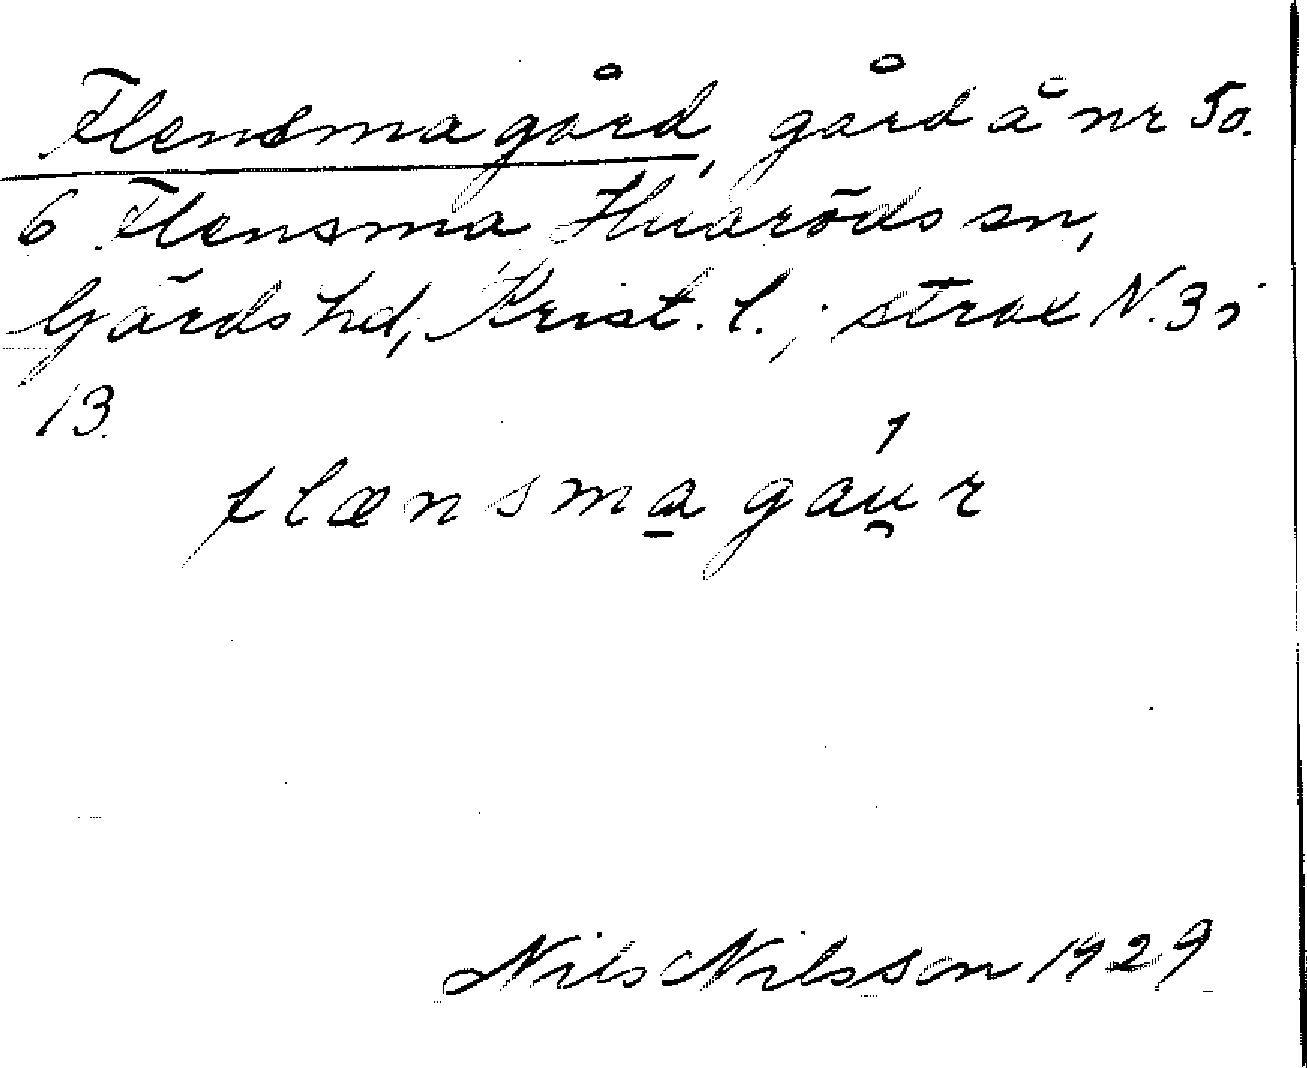 Flensmagård, gård å nr 50.
6 Flensma, Huaröds sn,
Gärds hd, Krist. l.; strax N. 3 i
13.
flænsmagáu̯r
Nils Nilsson 1929